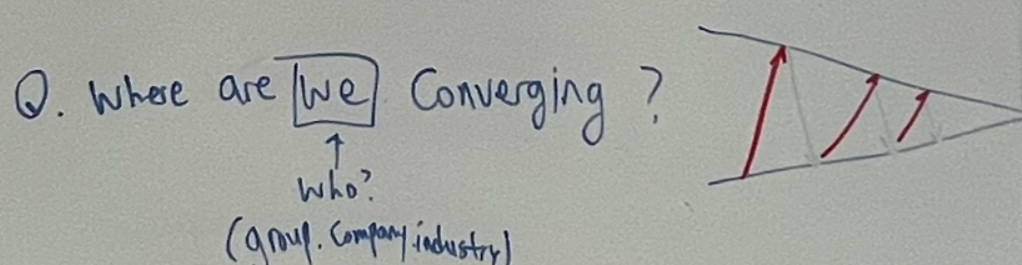 Q. Where are we Converging ?
who?
(group. Company. industry)